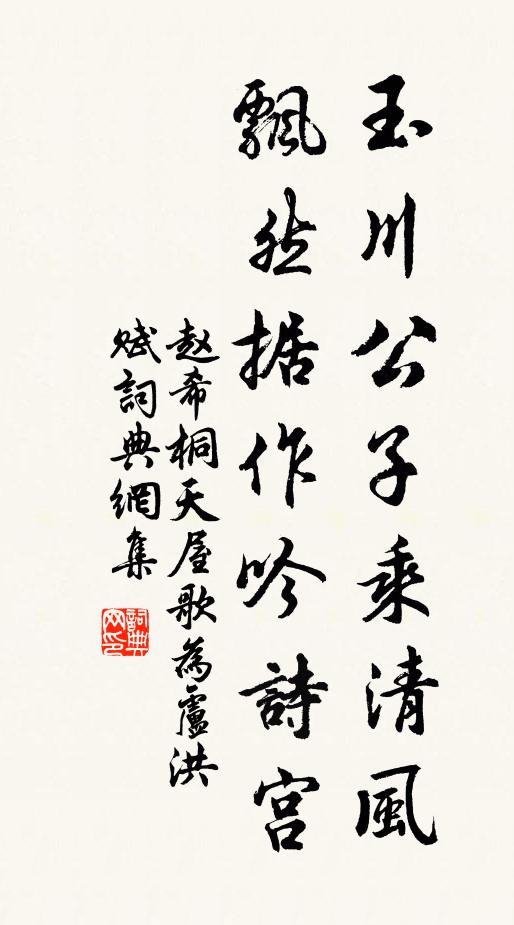 玉川公子乘清風
飄然据作吟詩宫
赵希桐天屋歌為盧洪
賦詞典網集
詞典
网印